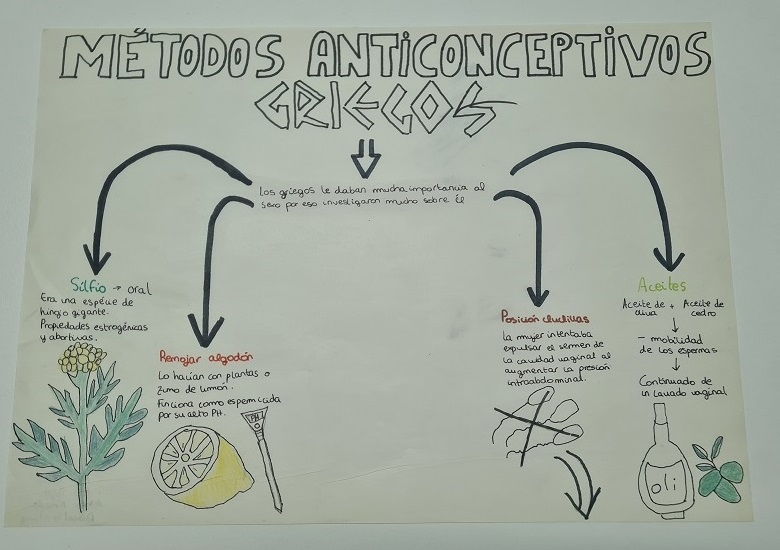 MÉTODOS ANTICONCEPTIVOS
GRIEGOS
Los griegos le daban mucha importancia al
sexo por eso investigaron mucho sobre él
Silfio → oral
Era una especie de
hinojo gigante.
Propiedades estrogénicas
y abortivas.
Remojar algodón
Lo hacían con plantas o
zumo de limón.
Funciona como espermicida
por su alto PH.
PH
Posición cluclillas
La mujer intentaba
expulsar el semen de
la cavidad vaginal al
augmentar la presión
intraabdominal.
Aceites
Aceite de + Aceite de
oliva cedro
↓
- mobilidad
de los espermas
↓
Continuado de
un lavado vaginal
oli